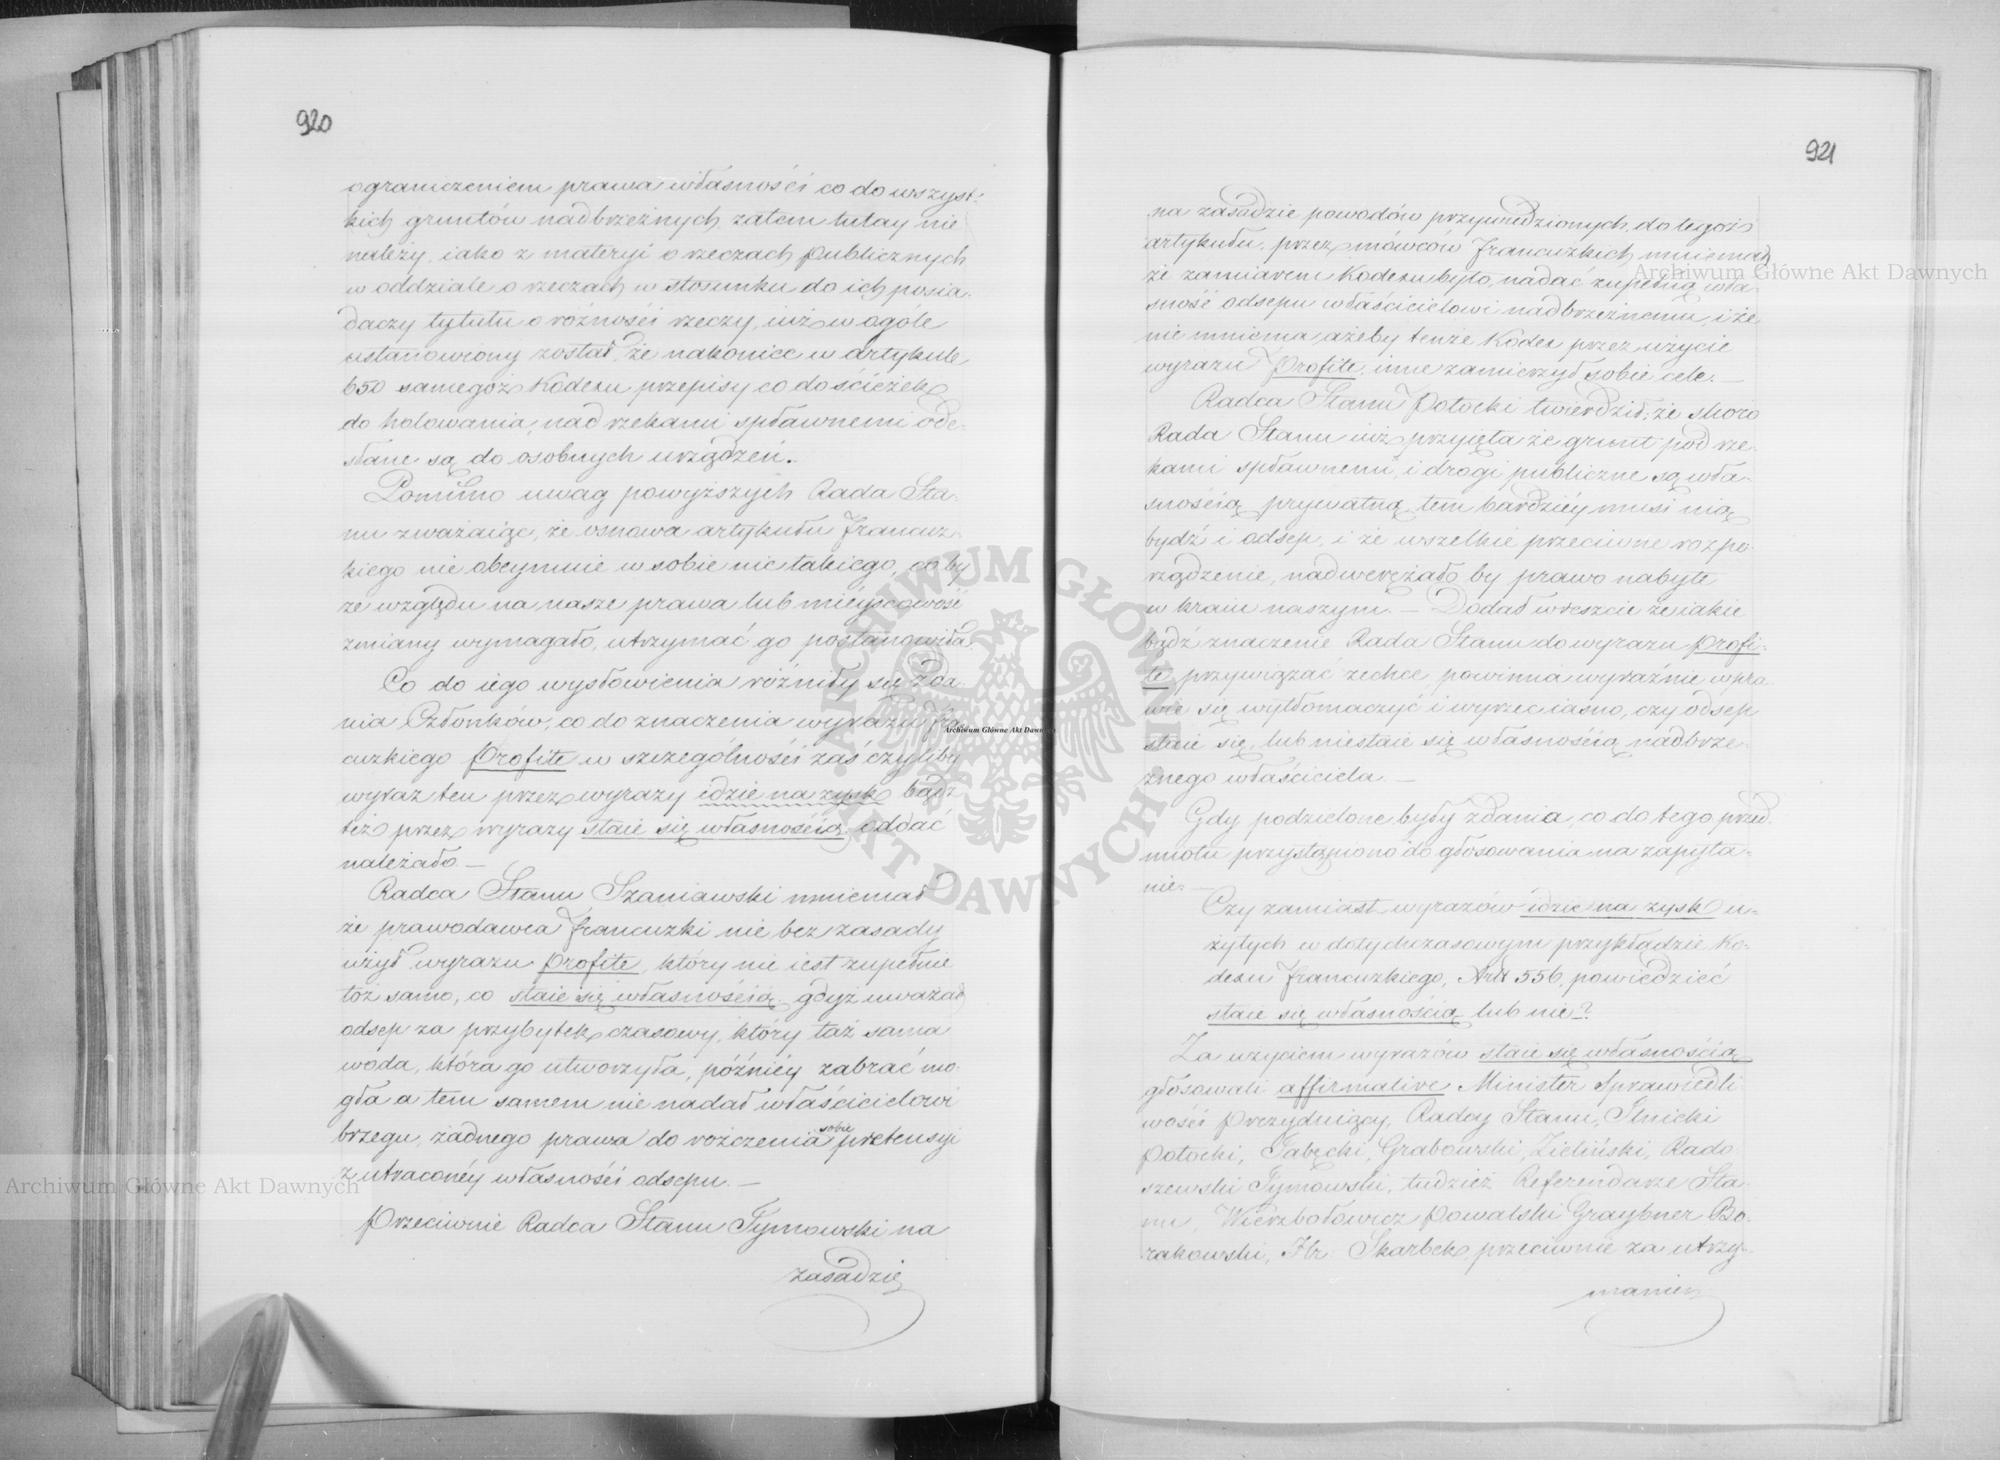 920
ograniczeniem prawa własności co do wszyst-
kich gruntów nadbrzeżnych, zatem tutay nie
należy, iako z materyi o rzeczach publicznych
w oddziale o rzeczach w stosunku do ich posia-
daczy tytułu o różności rzeczy, iuż w ogole
ustanowiony został, że nakoniec w artykule
650 samegoż Kodexu przepisy co do ścieżek
do holowania, nad rzekami spławnemi ode-
słane są do osobnych urządzeń.
Pomimo uwag powyższych Rada Sta-
nu zważaiąc, że osnowa artykułu francuz-
kiego nie obeymuie w sobie nic takiego, co by
ze względu na nasze prawa lub mieyscowość
zmiany wymagało, utrzymać go postanowiła.
Co do iego wysłowienia różniły się zda-
nia Członków, co do znaczenia wyrazu fra-
cuzkiego profite w szczególności zaś czyliby
wyraz ten przez wyrazy idzie na zysk bądź
też przez wyrazy staie się własnością, oddać
należało —
Radca Stanu Szaniawski mniemał
że prawodawca francuzki nie bez zasady
użył wyrazu profite, który nie iest zupełnie
toż samo, co staie się własnością, gdyż uważał
odsep za przybytek czasowy, który taż sama
woda, która go utworzyła, późniéy zabrać mo-
gła a tem samem nie nadał właścicielowi
brzegu, żadnego prawa do rożczenia sobie pretensyi
z utraconéy własności odsepu. —
Przeciwnie Radca Stanu Tymowski na
zasadzie
921
na zasadzie powodów przywiedzionych, do tegoż
artykułu, przez mówców francuzkich mniemał
że zamiarem Kodexu było, nadać zupełną wła-
sność odsepu właścicielowi nadbrzeżnemu, i że
nie mniema ażeby tenże Kodex przez użycie
wyrazu profite, inne zamierzył sobie cele. —
Radca Stanu Potocki twierdził, że skoro
Rada Stanu iuż przyięła że grunt pod rze-
kami spławnemi, i drogi publiczne są wła-
snością prywatną, tem bardziéy musi nią
bydź i odsep, i że wszelkie przeciwne rozpo-
rządzenie, nadwerężało by prawo nabyte
w kraiu naszym. — Dodał wreszcie że iakie
bądź znaczenie Rada Stanu do wyrazu profi-
te, przywiązać zechce, powinna wyraźnie w pra-
wie się wytłomaczyć i wyrzec iasno, czy odsep
staie się, lub niestaie się własnością nadbrze-
żnego właściciela. —
Gdy podzielone były zdania, co do tego przed-
miotu przystąpiono do głosowania na zapyta-
nie: —
Czy zamiast wyrazów idzie na zysk u-
żytych w dotychczasowym przykładzie Ko-
dexu francuzkiego, Artt 556, powiedzieć
staie się własnością lub nie?
Za użyciem wyrazów staie się własnością
głosowali affirmative Minister Sprawiedli-
wości Prezyduiący, Radcy Stanu, Ilnicki
Potocki, Tabęcki, Grabowski, Zieliński, Rado-
szewski Tymowski, tudzież Referendarze Sta-
nu, Wierzbołowicz Powalski Graybner Bo-
rakowski, Hr. Skarbek, przeciwnie za utrzy-
maniem
Archiwum Główne Akt Dawnych
Archiwum Główne Akt Dawnych
Archiwum Główne Akt Dawnych
ARCHIWUM GŁÓWNE AKT DAWNYCH